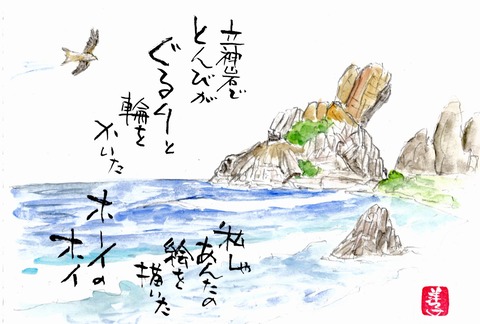 立神岩で
とんびが
ぐるりと
輪を
かいた
ホーイの
ホイ
私しゃ
あんたの
絵を
描いた